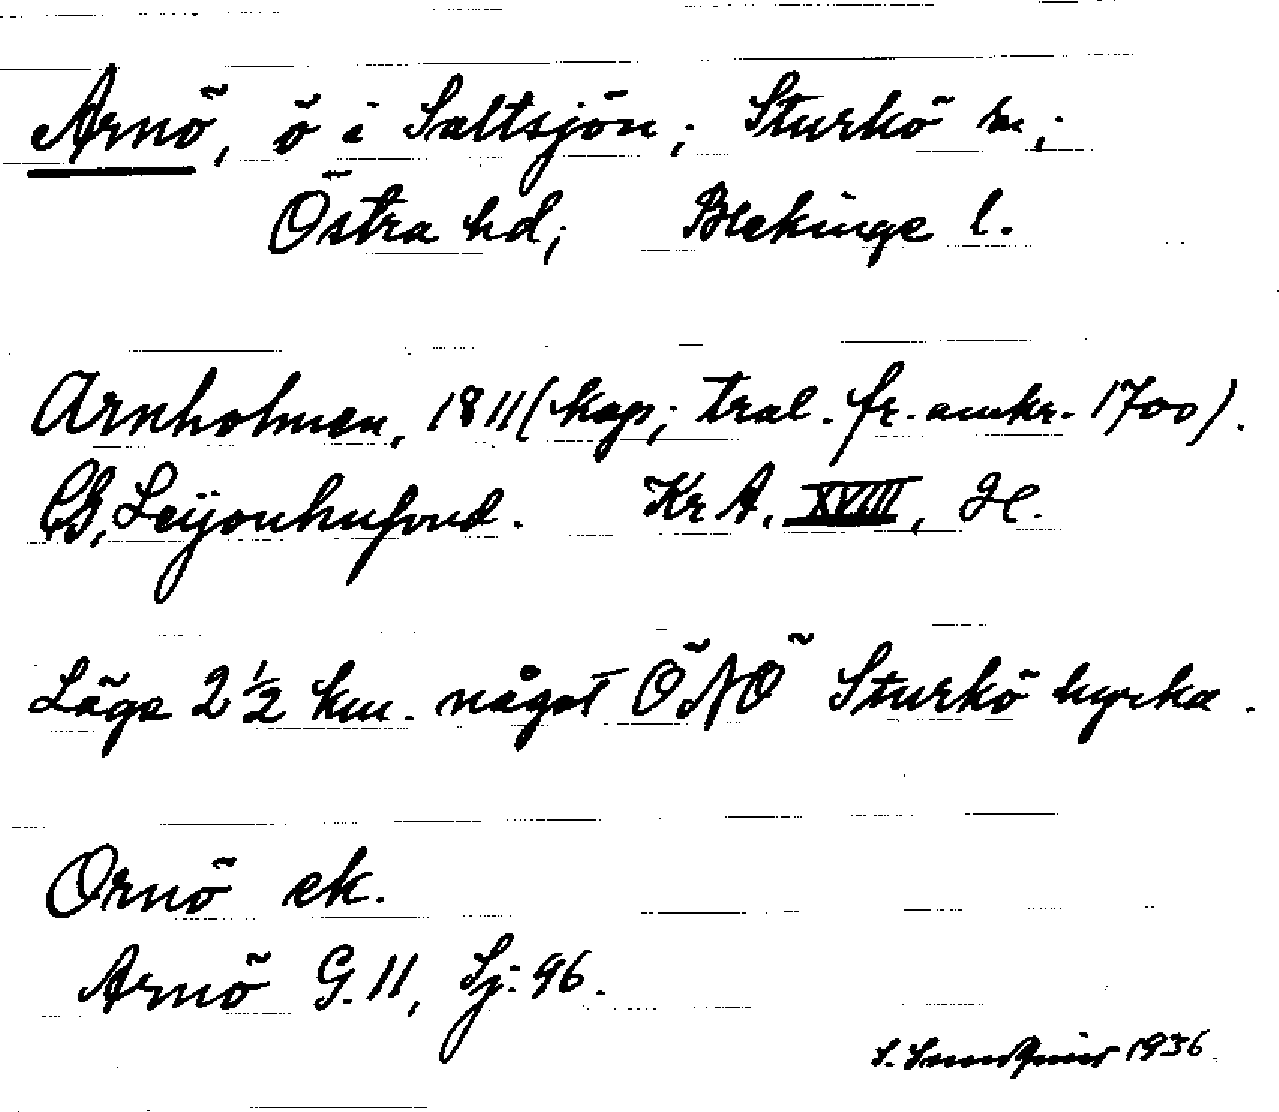 Arnö, ö i Saltsjön; Sturkö sn;
Östra hd; Blekinge l.
Arnholmen, 1811 (kop; tral. fr. omkr. 1700).
CG, Leijonhufvud. Kr A. XVIII, H.
Läge 2 1/2 km. något ÖNÖ Sturkö kyrka.
Ornö ek.
Arnö G. 11, Sj: 96.
S. 1936